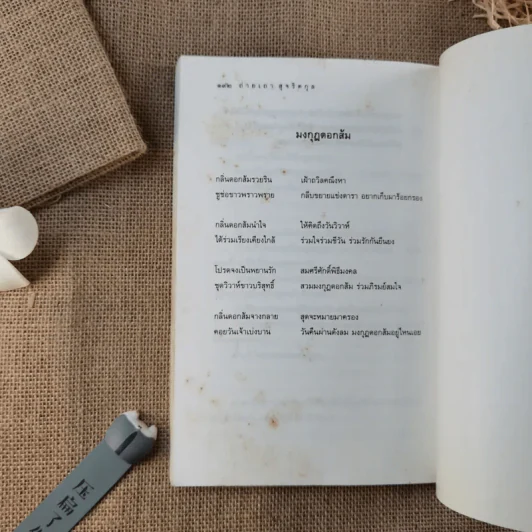 ๑๙๒ ถ่ายเถา สุจริตกุล
มงกุฎดอกส้ม
กลิ่นดอกส้มรวยริน เฝ้าถวิลคณึงหา
ชูช่อขาวพราวพราย กลีบขยายแข่งดารา อยากเก็บมาร้อยกรอง
กลิ่นดอกส้มนำใจ ให้คิดถึงวันวิวาห์
ได้ร่วมเรียงเคียงใกล้ ร่วมใจร่วมชีวัน ร่วมรักกันยืนยง
โปรดจงเป็นพยานรัก สมศรีศักดิ์พิธีมงคล
ชุดวิวาห์ขาวบริสุทธิ์ สวมมงกุฎดอกส้ม ร่วมภิรมย์สมใจ
กลิ่นดอกส้มจางกลาย สุดจะหมายมาครอง
คอยวันเจ้าเบ่งบาน วันคืนผ่านดังลม มงกุฎดอกส้มอยู่ไหนเอย
压扁了